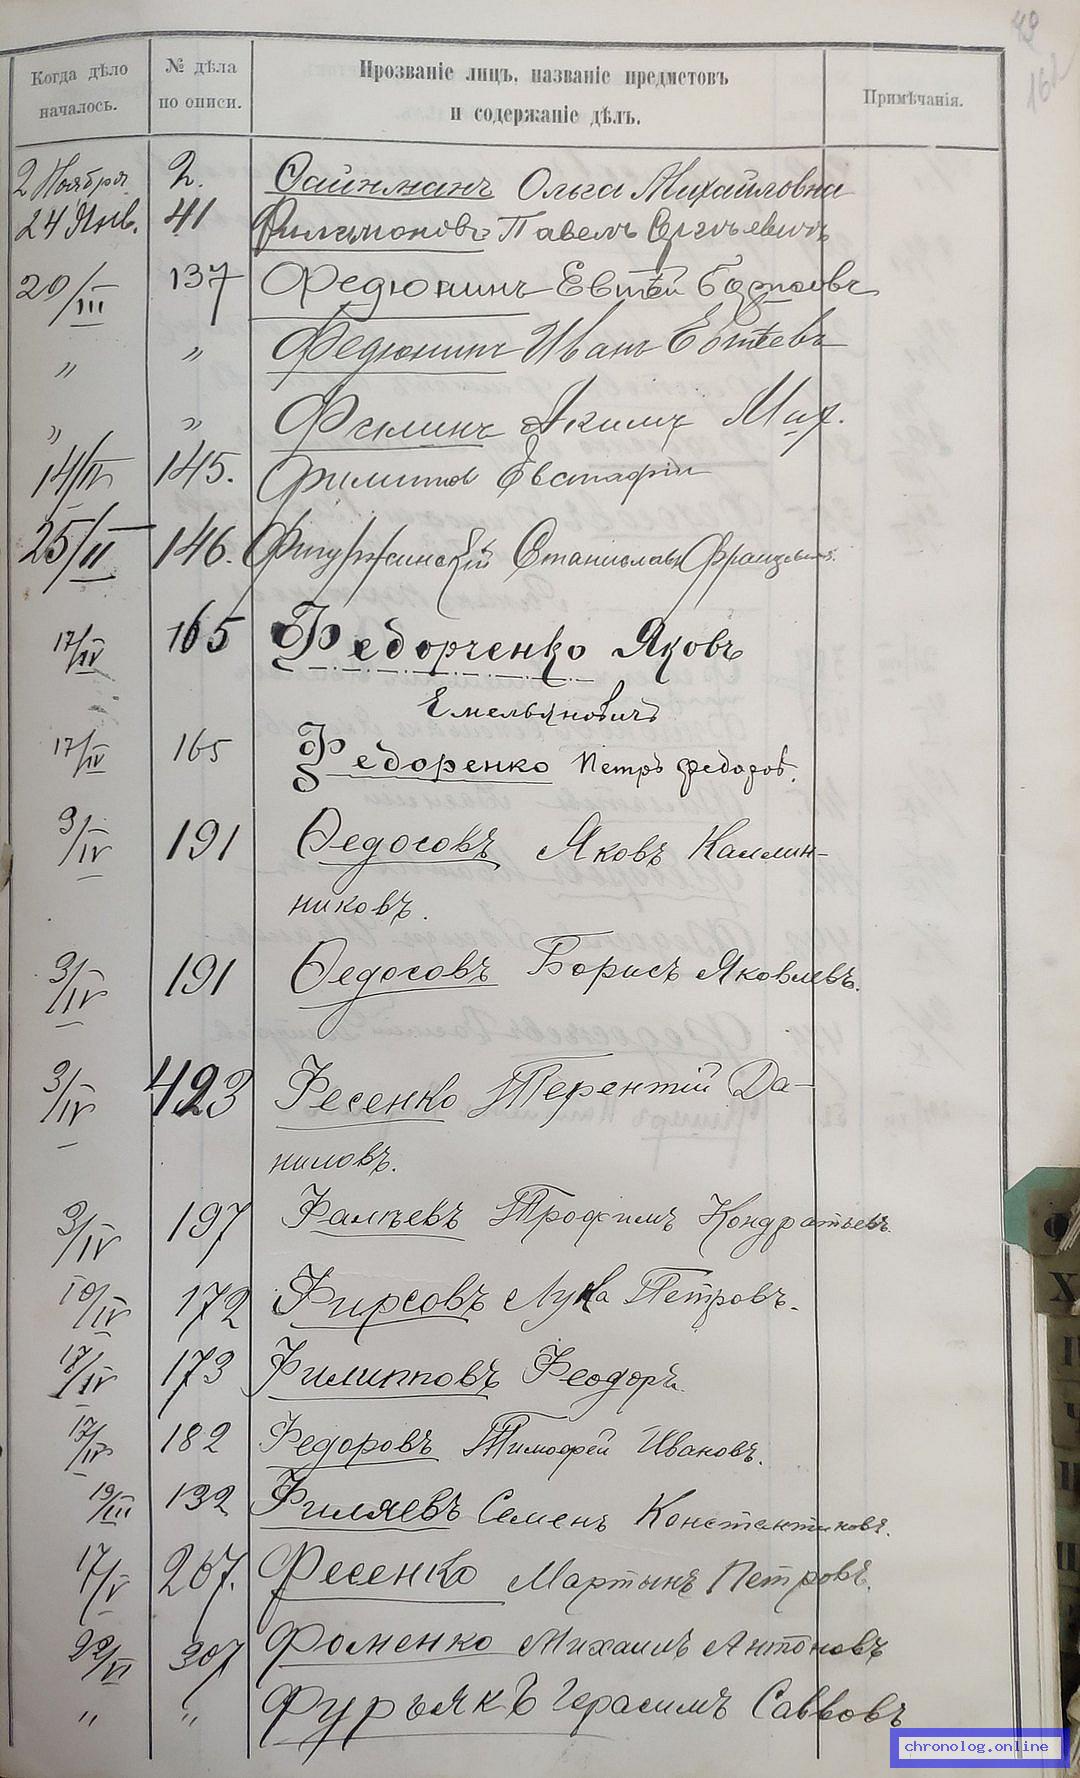 49
162
Когда дѣло началось.
№ дѣла по описи.
Прозваніе лицъ, названіе предметовъ и содержаніе дѣлъ.
Примѣчанія.
2 Ноября 2. Ольга Михайловна
24 Янв. 41 Филимоновъ Павелъ
20/III 137 Федюнинъ Евтѣй
" " Федюнинъ Иванъ Евтѣевъ
" " Акимъ
14/II 145. Евстафій
25/II 146. Станиславъ
17/IV 165 Федорченко Яковъ
Емельяновичъ
17/IV 165 Федоренко Петръ Федоров.
3/IV 191 Ѳедосовъ Яковъ Каллин-
никовъ.
3/IV 191 Ѳедосовъ Борисъ Яковлевъ.
3/IV 423 Фесенко Терентій Да-
ниловъ.
3/IV 197 Фалѣевъ Трофимъ Кондратьевъ
10/IV 172 Фирсовъ Лука Петровъ.
17/IV 173 Филипповъ Феодоръ.
17/IV 182 Федоровъ Тимофей Ивановъ.
19/III 132 Филяевъ Семенъ Константиновъ.
17/V 207. Фесенко Мартынъ Петровъ.
22/VI 307 Фоменко Михаилъ Антоновъ
" " Фурьякъ Герасимъ Саввовъ
Ф
Х
chronolog.online